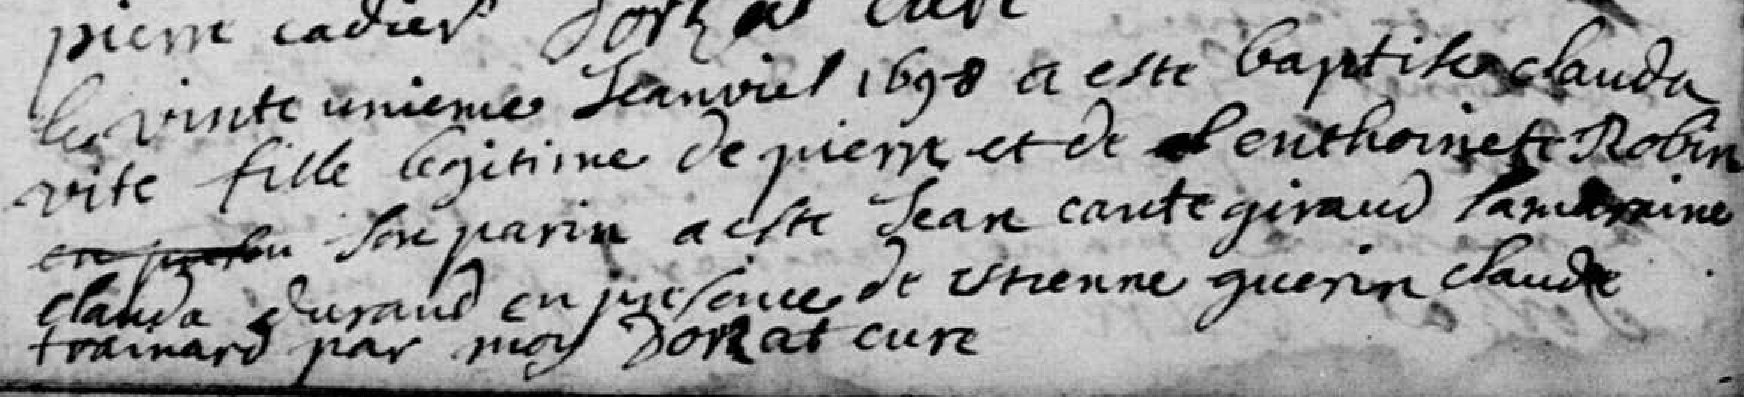 pierre cadier Dorzat cure
le vinte unieme Jeanvier 1698 a este baptise clauda
vite fille legitime de pierre et de enthoinete Robin
son parin a este Jean cante giraud sa maraine
clauda durand en presence de estienne guerin claude
trainard par moy Dorzat cure